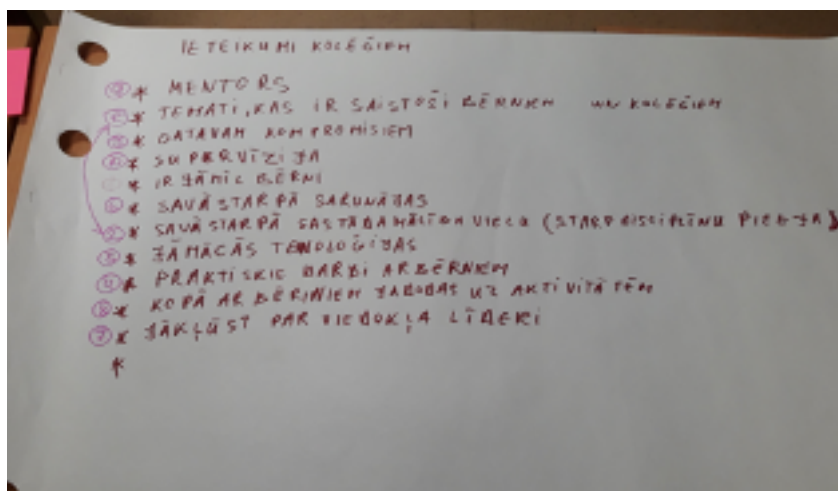 IETEIKUMI KOLĒĢIEM
* MENTORS
* TEMATI, KAS IR SAISTOŠI BĒRNIEM UN KOLĒĢIEM
* GATAVAM KOMPROMISIEM
* SUPERVĪZIJA
* IR JĀMĪL BĒRNI
* SAVĀ STARPĀ SARUNĀJAS
* SAVĀ STARPĀ VIELU (STARPDISCIPLĪNU PIEEJA)
* JĀMĀCĀS TEHNOLOĢIJAS
* PRAKTISKIE DARBI AR BĒRNIEM
* KOPĀ AR BĒRNIEM JĀDODAS UZ AKTIVITĀTĒM
* JĀKĻŪST PAR VIEDOKĻA LĪDERI
*